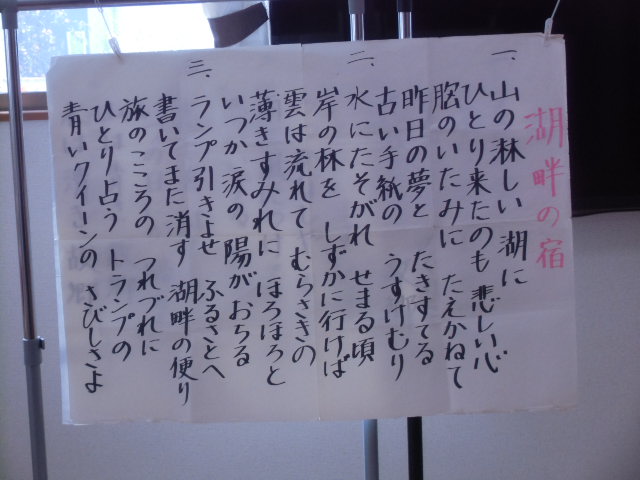 湖畔の宿
一、山の淋しい 湖に
ひとり来たのも 悲しい心
胸のいたみに たえかねて
昨日の夢と たきすてる
古い手紙の うすけむり
二、水にたそがれ せまる頃
岸の林を しずかに行けば
雲は流れて むらさきの
薄きすみれに ほろほろと
いつか涙の 陽がおちる
三、ランプ引きよせ ふるさとへ
書いてまた消す 湖畔の便り
旅のこころの つれづれに
ひとり占う トランプの
青いクイーンの さびしさよ